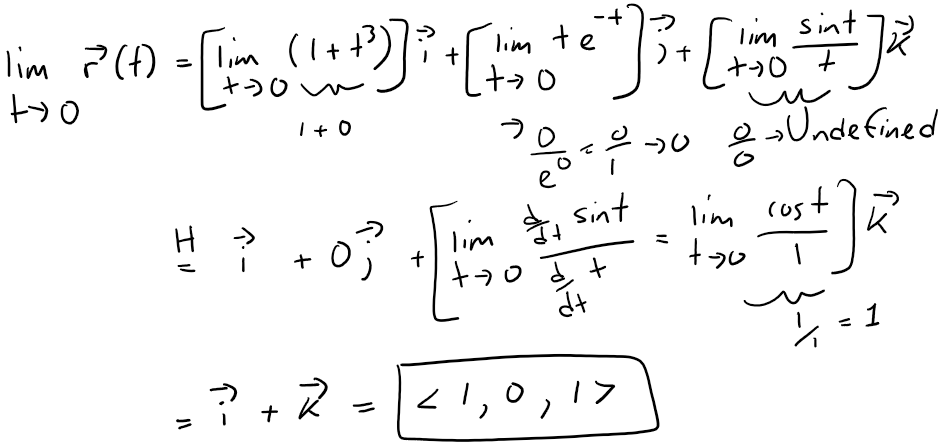 lim t→0 r⃗(t) = [lim t→0 (1+t³)] i⃗ + [lim t→0 t e^-t] j⃗ + [lim t→0 sin t / t] k⃗
1 + 0 → 0/e^0 = 0/1 → 0 0/0 → Undefined
H= i⃗ + 0 j⃗ + [lim t→0 d/dt sin t / d/dt t = lim t→0 cos t / 1] k⃗
1/1 = 1
= i⃗ + k⃗ = < 1, 0, 1 >